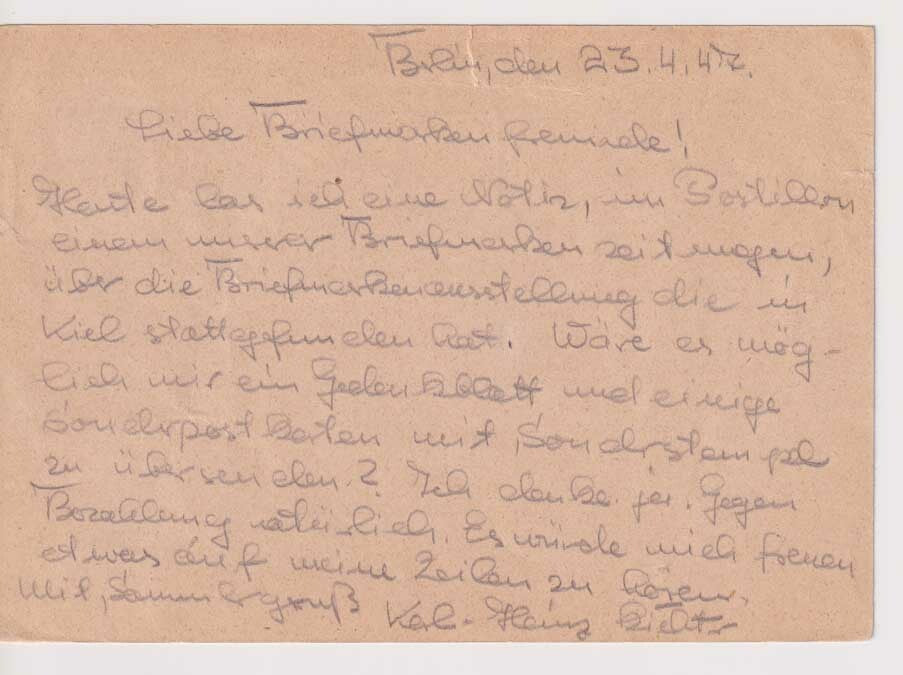 Berlin, den 23.4.47.
Liebe Briefmarkenfreunde!
Heute las ich eine Notiz, im Postillon
einem unserer Briefmarkenzeitungen,
über die Briefmarkenausstellung die in
Kiel stattgefunden hat. Wäre es mög-
lich mir ein Gedenkblatt und einige
Sonderpostkaten mit Sonderstempel
zu übersenden? Ich denke ja. Gegen
Bezahlung natürlich. Es würde mich freuen
etwas auf meine Zeilen zu hören.
Mit Sammlergruß Karl-Heinz Richter